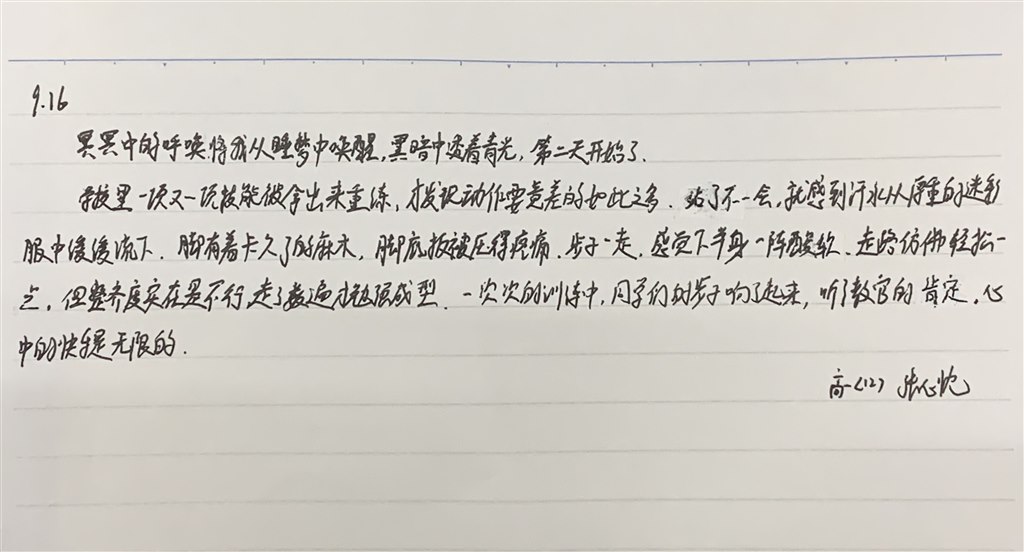 9.16
冥冥中的呼唤将我从睡梦中唤醒,黑暗中透着青光,第二天开始了.
学校里一项又一项技能被拿出来重练,才发现动作要竟差的如此之多.站了不一会,就感到汗水从厚重的迷彩
服中缓缓流下.脚有着卡久了的麻木,脚底板被压得疼痛.步子一走,感觉下半身一阵酸软.走路仿佛轻松一
点,但整齐度实在是不行,走了数遍才勉强成型.一次次的训练中,同学们的步子响了起来,听了教官的肯定,心
中的快乐是无限的.
高一(12) 张心忱